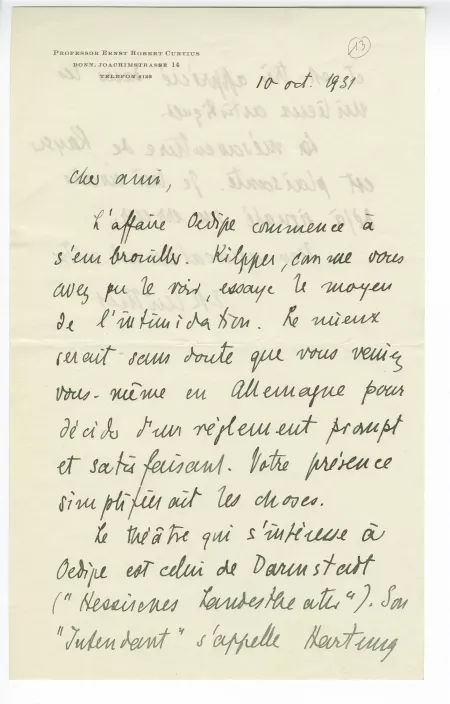 PROFESSOR ERNST ROBERT CURTIUS
BONN, JOACHIMSTRASSE 14
TELEFON 2128
13
10 oct. 1931
cher ami,
L'affaire Oedipe commence à
s'embrouiller. Kilpper, comme vous
avez pu le voir, essaye le moyen
de l'intimidation. Le mieux
serait sans doute que vous veniez
vous-même en Allemagne pour
décider d'un règlement prompt
et satisfaisant. Votre présence
simplifierait les choses.
Le théâtre qui s'intéresse à
Oedipe est celui de Darmstadt
("Hessisches Landestheater"). Son
"Intendant" s'appelle Hartung